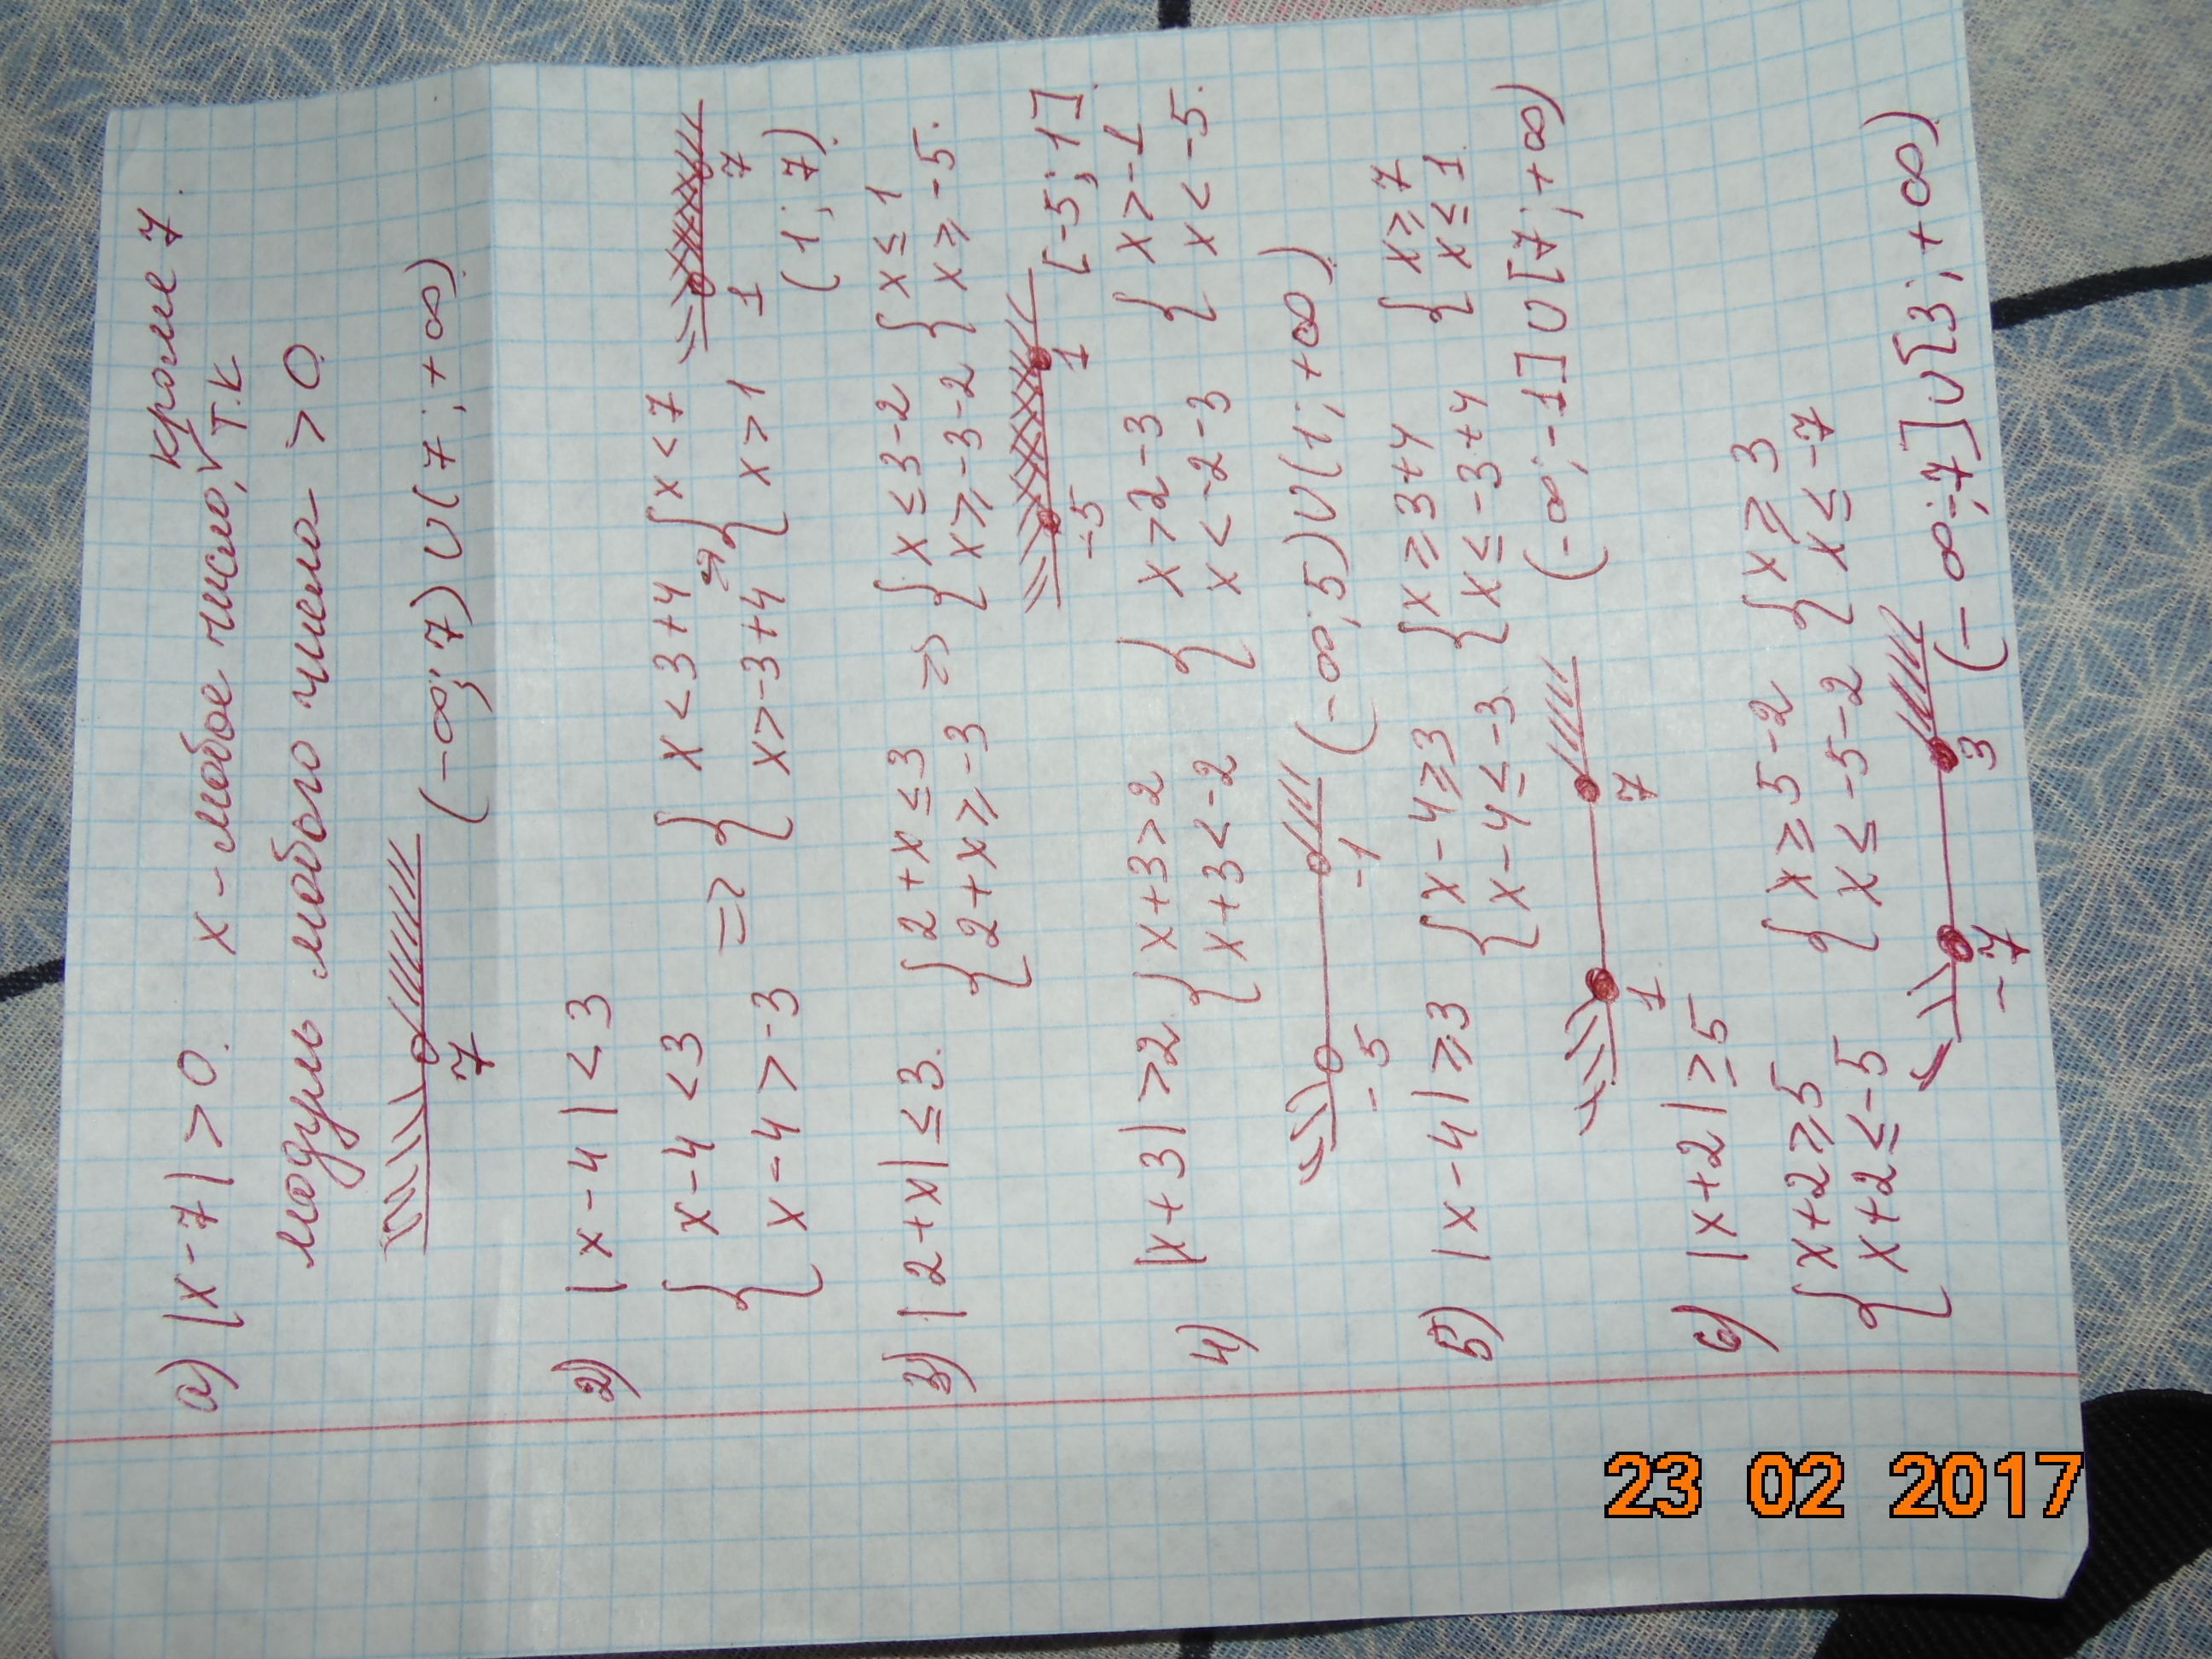 а) |x-7| > 0. x - любое число, кроме 7.
т.к
модуль любого числа > 0.
7 (-∞; 7) ∪ (7; +∞).
2) |x-4| < 3
{ x-4 < 3 => { x < 3+4 => { x < 7
{ x-4 > -3 { x > -3+4 { x > 1 1 7
(1; 7).
3) |2+x| ≤ 3. { 2+x ≤ 3 => { x ≤ 3-2 { x ≤ 1
{ 2+x ≥ -3 { x ≥ -3-2 { x ≥ -5.
-5 1 [-5; 1].
4) |x+3| > 2 { x+3 > 2 { x > 2-3 { x > -1
{ x+3 < -2 { x < -2-3 { x < -5.
-5 -1 (-∞; 5) ∪ (1; +∞)
5) |x-4| ≥ 3 { x-4 ≥ 3 { x ≥ 3+4 { x ≥ 7
{ x-4 ≤ -3 { x ≤ -3+4 { x ≤ 1.
1 7 (-∞; -1] ∪ [7; +∞)
6) |x+2| ≥ 5
{ x+2 ≥ 5 { x ≥ 5-2 { x ≥ 3
{ x+2 ≤ -5 { x ≤ -5-2 { x ≤ -7
-7 3 (-∞; -7] ∪ [3; +∞)
23 02 2017